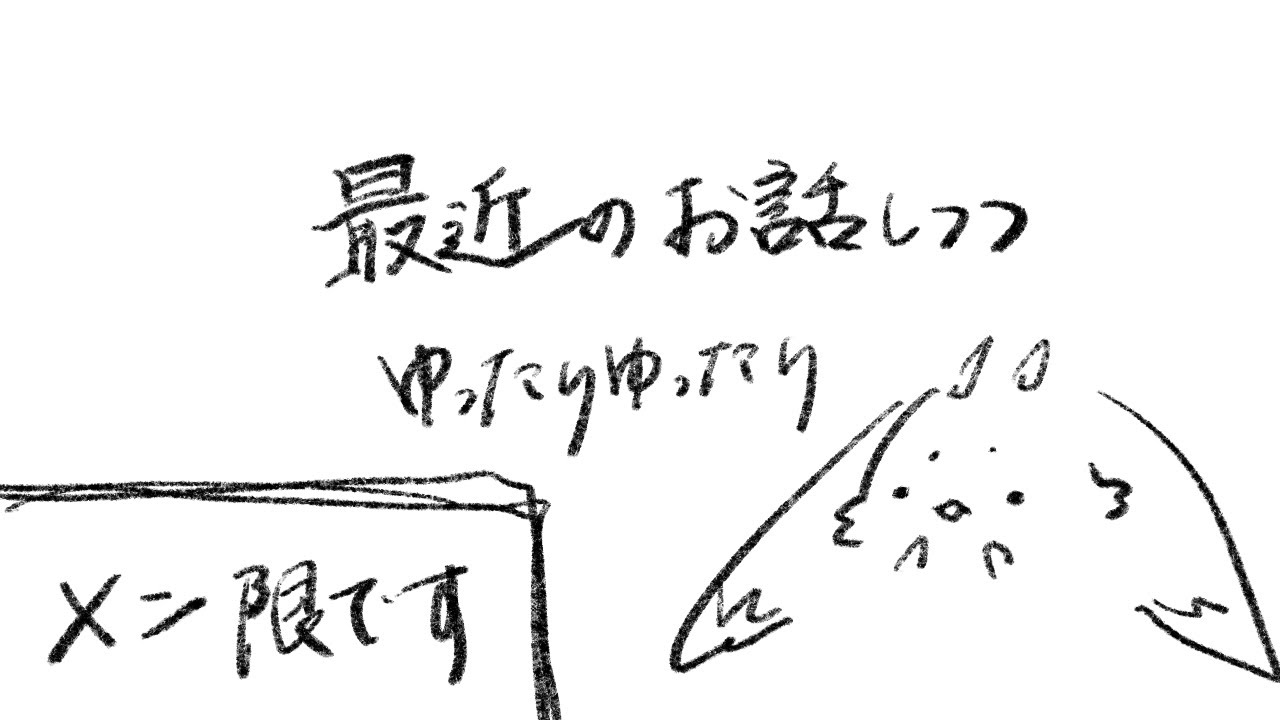 最近のお話しつつ
ゆったりゆったり
メン限です